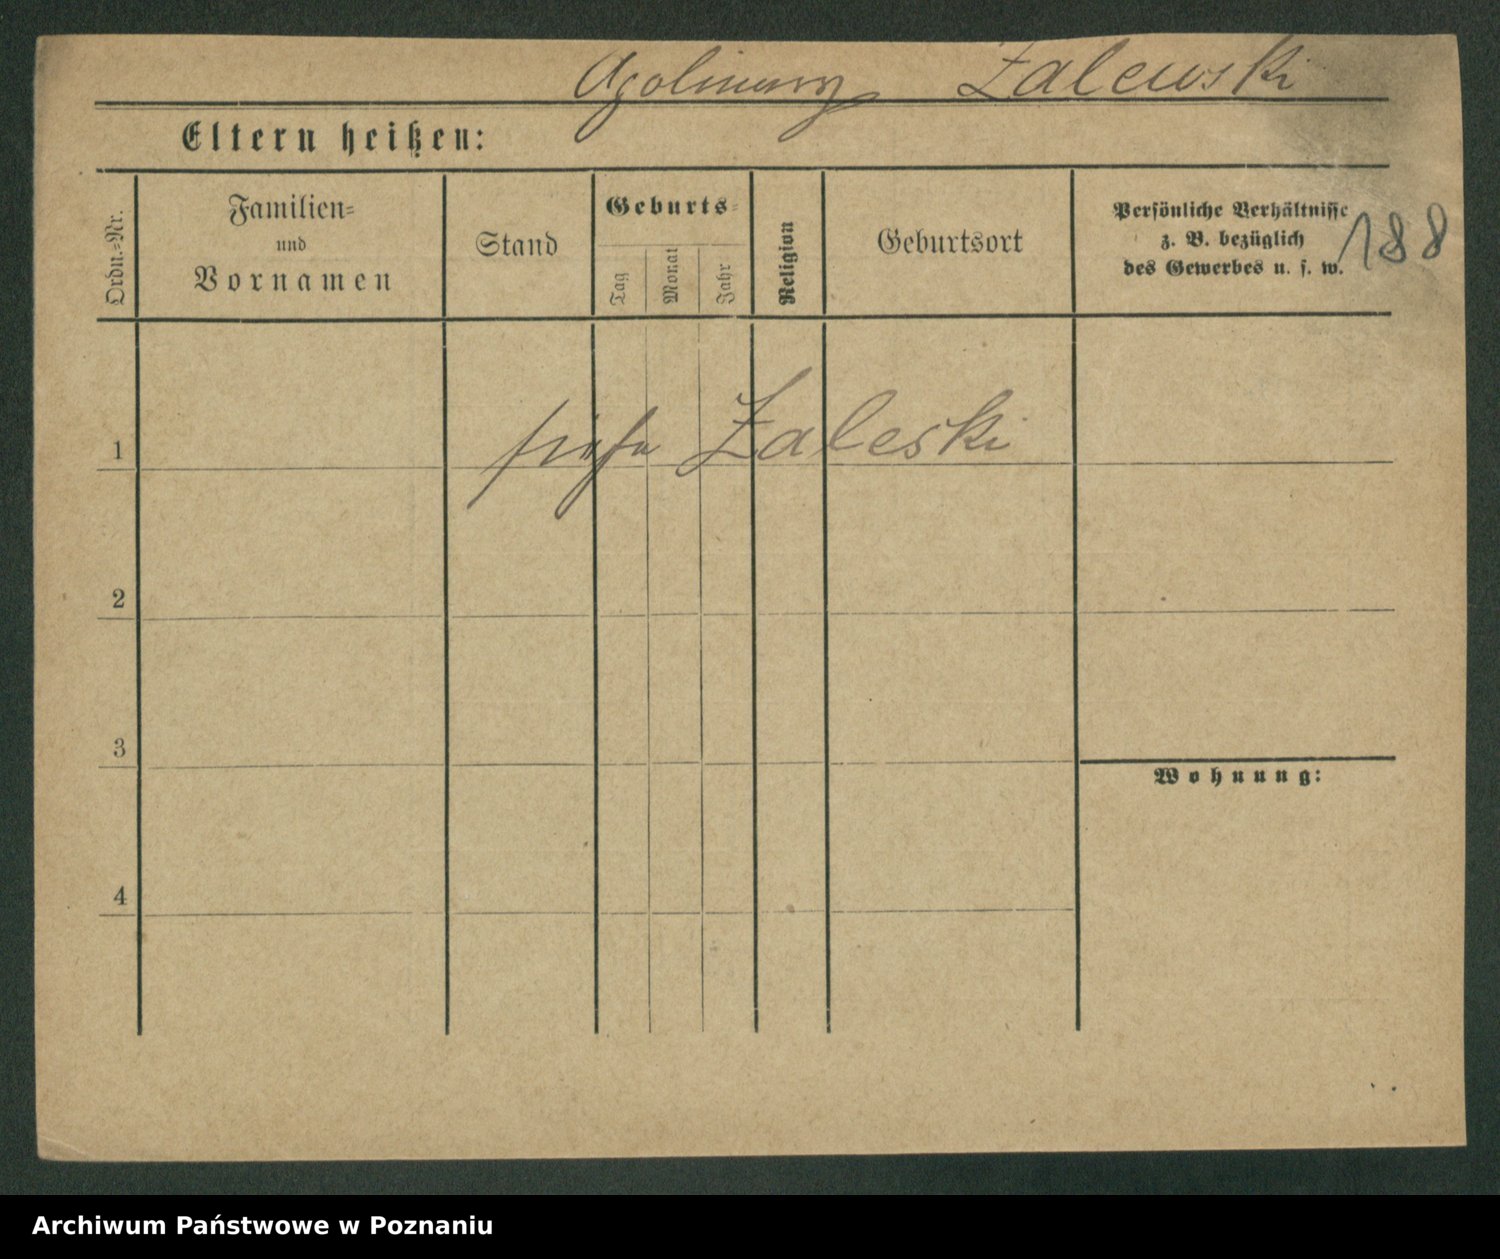 Apolinary Zalewski
Eltern heißen:
Ordn.=Nr.
Familien=
und
Vornamen
Stand
Geburts=
Tag
Monat
Jahr
Religion
Geburtsort
Persönliche Verhältnisse
z. B. bezüglich
des Gewerbes u. s. w.
188
1
siehe Zaleski
2
3
Wohnung:
4
Archiwum Państwowe w Poznaniu